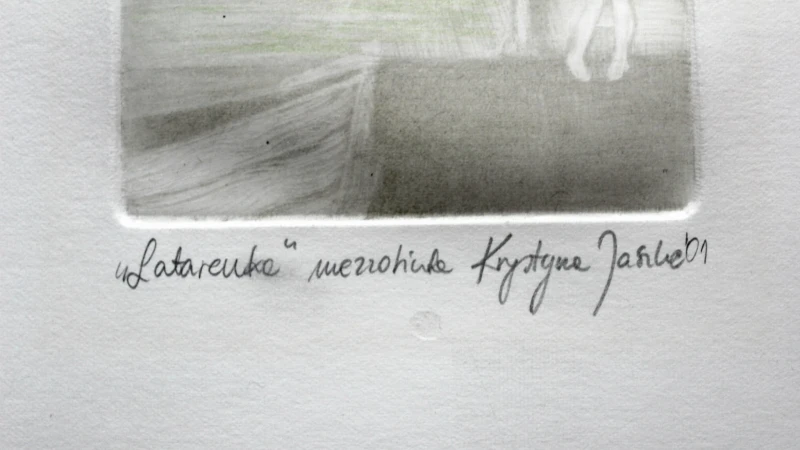 „Latarenka" mezzotinta Krystyna Jaszke '01